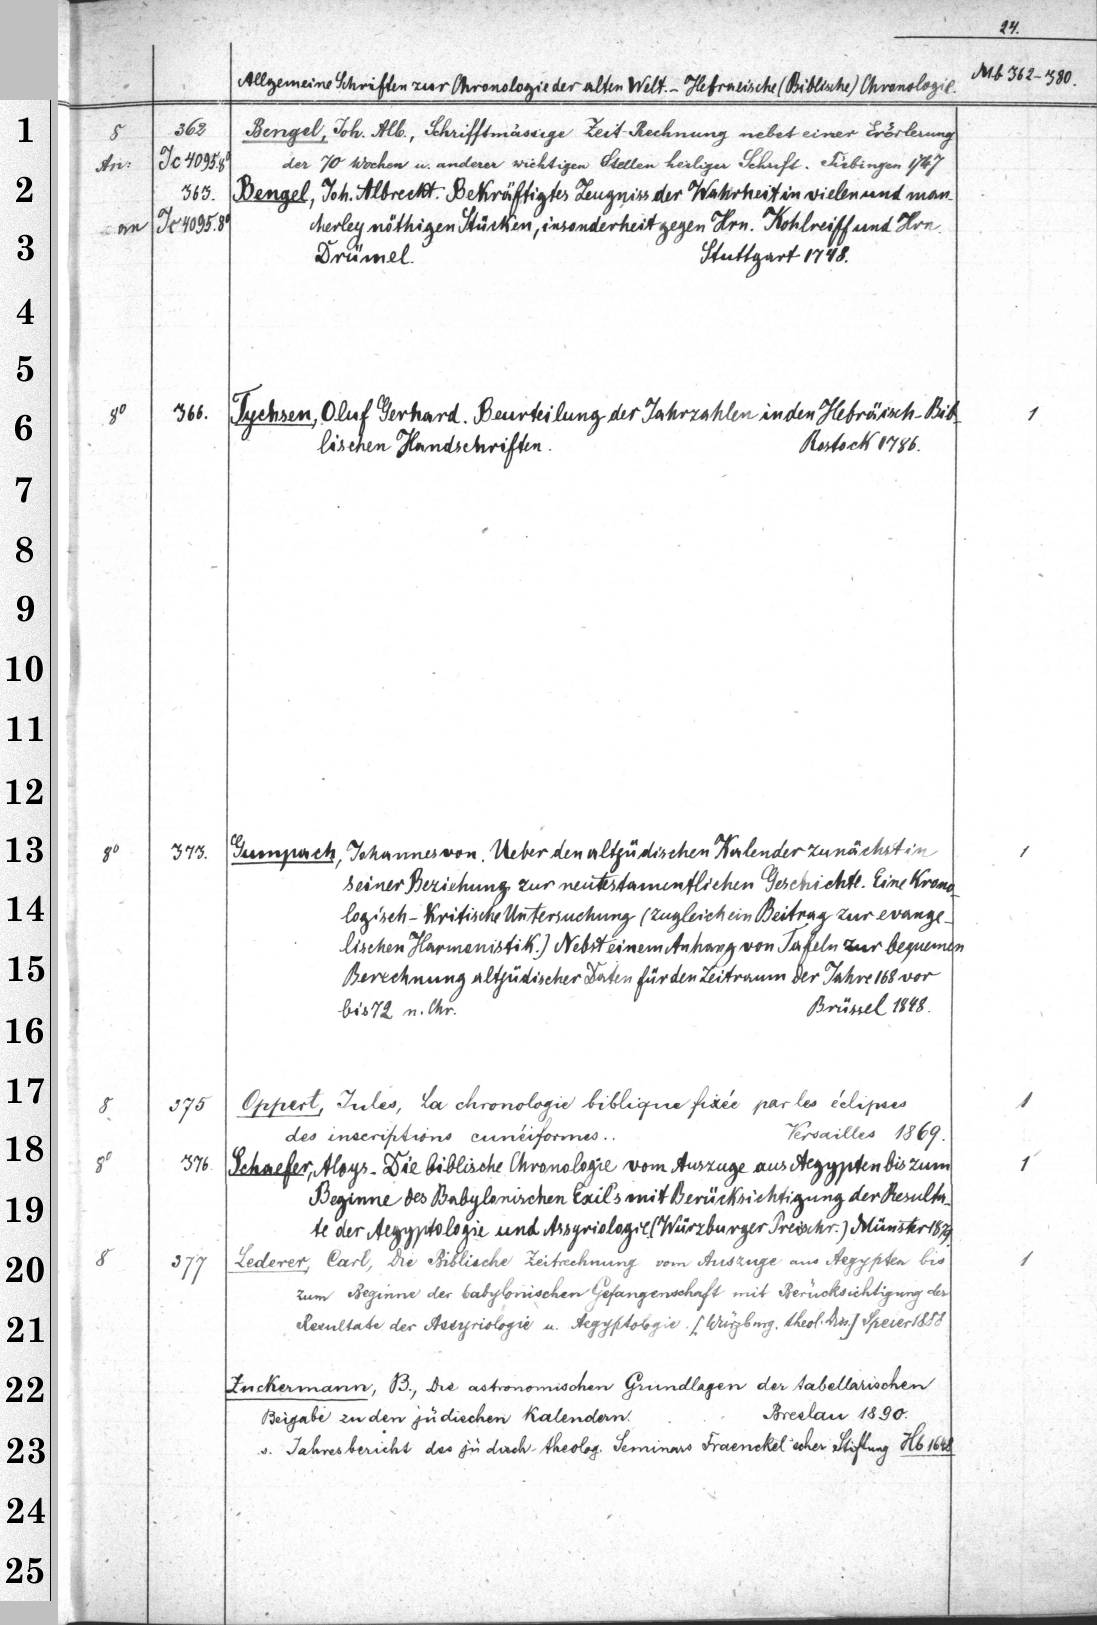 24.
Allgemeine Schriften zur Chronologie der alten Welt. – Hebraeische (Biblische) Chronologie. Mb 362–380.
1
8 362 Bengel, Joh. Alb., Schrifftmässige Zeit-Rechnung nebst einer Erörterung
An: Jc 4095.8° der 70 Wochen u. anderer wichtigen Stellen heiliger Schrift. Tübingen 1747
2
363. Bengel, Joh. Albrecht. Bekräftigtes Zeugniss der Wahrheit in vielen und man-
an Jc 4095.8° cherley nöthigen Stücken, insonderheit gegen Hrn. Kohlreiff und Hrn.
3
Drümel. Stuttgart 1748.
4
5
8° 366. Tychsen, Oluf Gerhard. Beurteilung der Jahrzahlen in den Hebräisch-Bib- 1
6
lischen Handschriften. Rostock 1786.
7
8
9
10
11
12
13
8° 373. Gumpach, Johannes von. Ueber den altjüdischen Kalender zunächst in 1
seiner Beziehung zur neutestamentlichen Geschichte. Eine Krono-
14
logisch-kritische Untersuchung (zugleich ein Beitrag zur evange-
lischen Harmonistik.) Nebst einem Anhang von Tafeln zur bequemen
15
Berechnung altjüdischer Daten für den Zeitraum der Jahre 168 vor
bis 72 n. Chr. Brüssel 1848.
16
17
8 375 Oppert, Jules, La chronologie biblique fixée par les éclipses 1
des inscriptions cunéiformes.. Versailles 1869.
18
8° 376. Schaefer, Aloys. Die biblische Chronologie vom Auszuge aus Aegypten bis zum 1
Beginne des Babylonischen Exil's mit Berücksichtigung der Resulta-
19
te der Aegyptologie und Assyriologie. (Würzburger Preisschr.) Münster 1879.
20
8 377 Lederer, Carl, Die Biblische Zeitrechnung vom Auszuge aus Aegypten bis 1
zum Beginne der babylonischen Gefangenschaft mit Berücksichtigung der
21
Resultate der Assyriologie u. Aegyptologie. [Würzburg. theol. Diss.] Speier 1888
22
Zuckermann, B., Die astronomischen Grundlagen der tabellarischen
Beigabe zu den jüdischen Kalendern. Breslau 1890.
23
s. Jahresbericht des jüdisch-theolog. Seminars Fraenckel'scher Stiftung Hb 1648
24
25